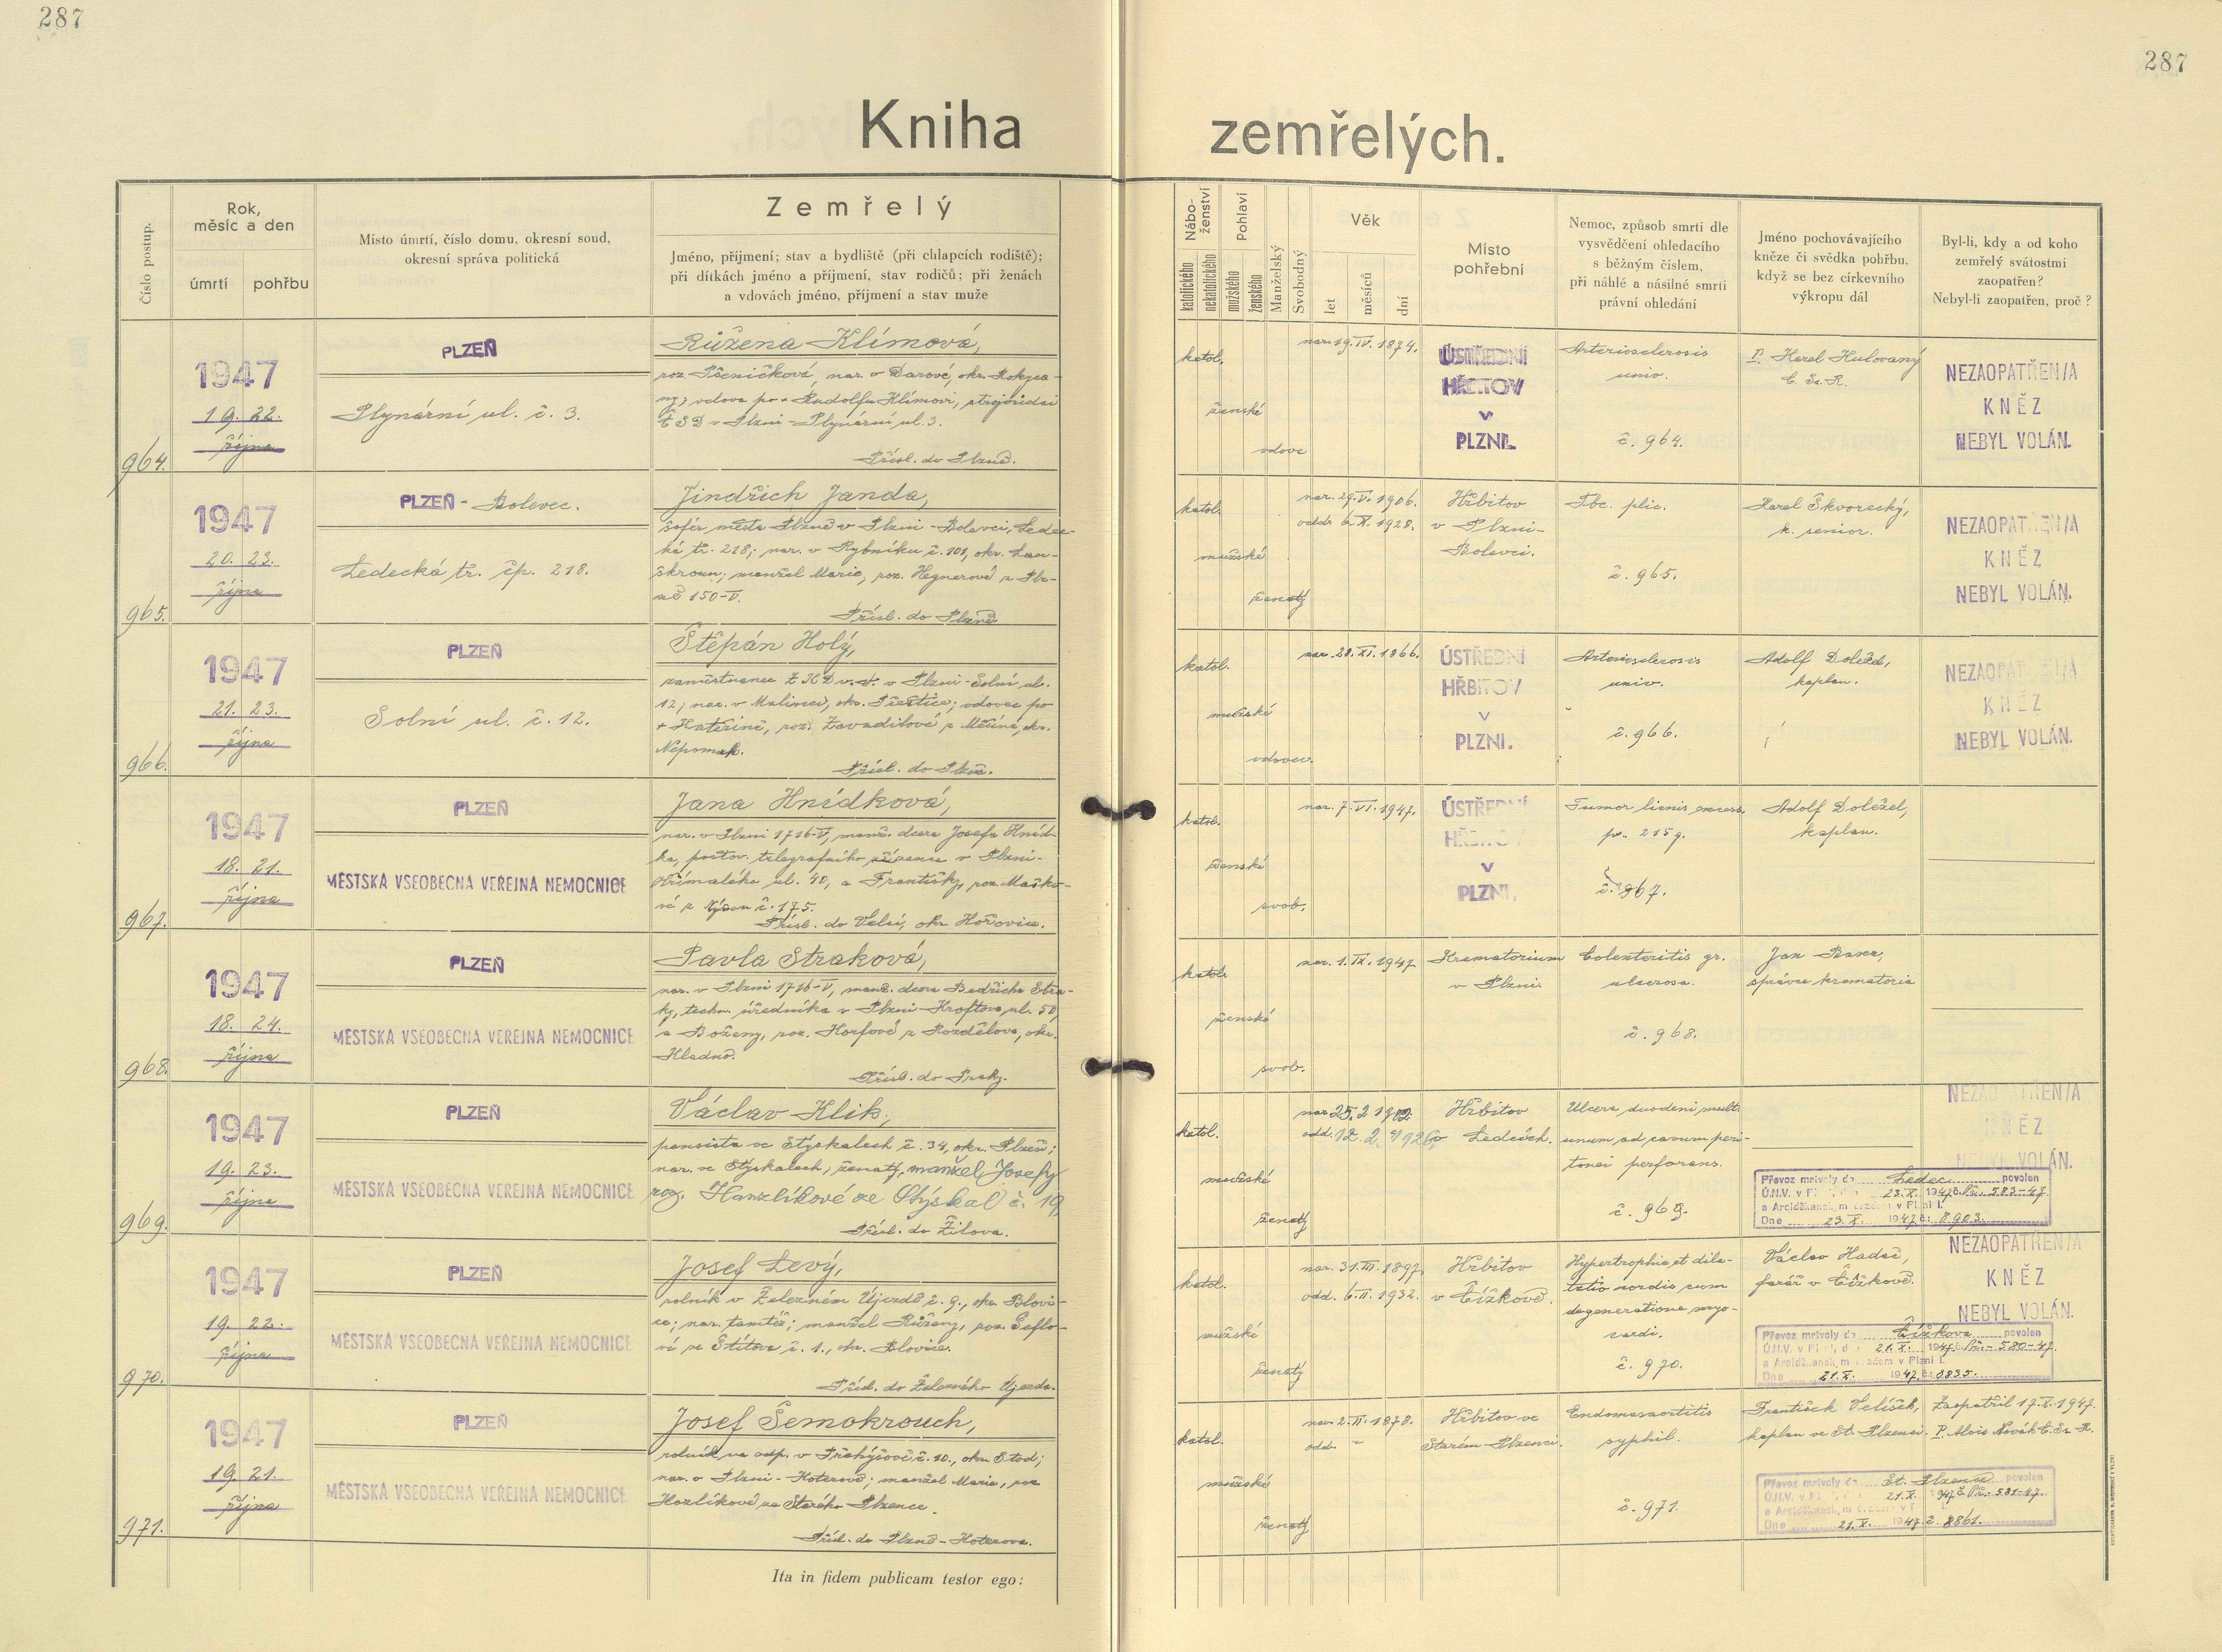 287
287
Kniha zemřelých.
Číslo postup.
Rok, měsíc a den
úmrtí
pohřbu
Místo úmrtí, číslo domu, okresní soud,
okresní správa politická
Zemřelý
Jméno, příjmení; stav a bydliště (při chlapcích rodiště);
při dítkách jméno a příjmení, stav rodičů; při ženách
a vdovách jméno, příjmení a stav muže
Nábo-
ženství
katolického
nekatolického
Pohlaví
mužského
ženského
Manželský
Svobodný
Věk
let
měsíců
dní
Místo
pohřební
Nemoc, způsob smrti dle
vysvědčení ohledacího
s běžným číslem,
při náhlé a násilné smrti
právní ohledání
Jméno pochovávajícího
kněze či svědka pohřbu,
když se bez církevního
výkropu dál
Byl-li, kdy a od koho
zemřelý svátostmi
zaopatřen?
Nebyl-li zaopatřen, proč?
964.
1947
19. 22.
října
PLZEŇ
Plynární ul. č. 3.
Růžena Klímová,
roz. Pšeničková, nar. v Darové, okr. Rokyca-
ny, vdova po + Rudolfu Klímovi, strojvůdci
ČSD v Plzni - Plynární ul. 3.
Přísl. do Plzně.
katol.
ženské
vdova
nar. 19. IV. 1874.
ÚSTŘEDNÍ
HŘBITOV
v
PLZNI.
Arteriosclerosis
univ.
č. 964.
P. Karel Hulovaný
C. Ss. R.
NEZAOPATŘEN/A
KNĚZ
NEBYL VOLÁN.
965.
1947
20. 23.
října
PLZEŇ - Bolevec.
Ledecká tř. čp. 218.
Jindřich Janda,
šofér města Plzně v Plzni - Bolevci, Ledec-
ká tř. 218; nar. v Rybníku č. 101, okr. Lan-
škroun; manžel Marie, roz. Hegnerové z Plz-
ně 150-V.
Přísl. do Plzně
katol.
mužské
ženatý
nar. 29. V. 1906.
odd. 6. X. 1928.
Hřbitov
v Plzni-
Bolevci.
Tbc. plic.
č. 965.
Karel Škvorecký,
k. senior.
NEZAOPATŘEN/A
KNĚZ
NEBYL VOLÁN.
966.
1947
21. 23.
října
PLZEŇ
Solní ul. č. 12.
Štěpán Holý,
zaměstnanec ŽKD v. v. v Plzni - Solní ul.
12, nar. v Malinci, okr. Přeštice; vdovec po
+ Kateřině, roz. Zavadilové z Měcína, okr.
Nepomuk.
Přísl. do Plzně.
katol.
mužské
vdovec.
nar. 28. XI. 1866.
ÚSTŘEDNÍ
HŘBITOV
v
PLZNI.
Arteriosclerosis
univ.
č. 966.
Adolf Doležel,
kaplan.
NEZAOPATŘEN/A
KNĚZ
NEBYL VOLÁN.
967.
1947
18. 21.
října
PLZEŇ
MĚSTSKÁ VŠEOBECNÁ VEŘEJNÁ NEMOCNICE
Jana Hnídková,
nar. v Plzni 1716-V, manž. dcera Josefa Hníd-
ka, poštov. telegrafního zřízence v Plzni-
Otřímalého ul. 40, a Františky, roz. Maško-
vé z č. 175.
Přísl. do Velíz, okr. Hořovice.
katol.
ženské
svob.
nar. 7. VI. 1947.
ÚSTŘEDNÍ
HŘBITOV
v
PLZNI.
Tumor lienis excess.
p. 215 g.
č. 967.
Adolf Doležel,
kaplan.
968.
1947
18. 24.
října
PLZEŇ
MĚSTSKÁ VŠEOBECNÁ VEŘEJNÁ NEMOCNICE
Pavla Straková,
nar. v Plzni 1716-V, manž. dcera Bedřicha Stra-
ky, techn. úředníka v Plzni - Kroftova ul. 50,
a Boženy, roz. Horfové z Rozdělova, okr.
Kladno.
Přísl. do Prahy.
katol.
ženské
svob.
nar. 1. IX. 1947
Krematorium
v Plzni.
Colenteritis gr.
ulcerosa.
č. 968.
Jan Baxer,
správce krematoria
969.
1947
19. 23.
října
PLZEŇ
MĚSTSKÁ VŠEOBECNÁ VEŘEJNÁ NEMOCNICE
Václav Klik,
pensista ve Stýskalech č. 34, okr. Plzeň;
nar. ve Stýskalech, ženatý, manžel Josefy
roz. Hanzlíkové ze Stýskal č. 19
Přísl. do Žilova.
katol.
mužské
ženatý
nar. 25. 2. 1902
odd. 12. 2. 1926
Hřbitov
v Ledcích.
Ulcera duodeni mult.
unum ad cavum peri-
tonei perforans.
č. 969.
NEZAOPATŘEN/A
KNĚZ
NEBYL VOLÁN.
Převoz mrtvoly do Ledec povolen
Ú.N.V. v Plzni, dne 23. X. 1947 č. Př.- 583-47.
a Arciděkanským úřadem v Plzni I.
Dne 23. X. 1947 č: 8903.
970.
1947
19. 22.
října
PLZEŇ
MĚSTSKÁ VŠEOBECNÁ VEŘEJNÁ NEMOCNICE
Josef Levý,
rolník v Železném Újezdě č. 9., okr. Blovi-
ce; nar. tamtéž; manžel Růženy, roz. Šeflo-
vé ze Štítova č. 1., okr. Blovice.
Přísl. do Železného Újezda.
katol.
mužské
ženatý
nar. 31. III. 1897.
odd. 6. II. 1932.
Hřbitov
v Čížkově.
Hypertrophia et dila-
tatio cordis cum
degeneratione myo-
cardi.
č. 970.
Václav Hadač,
farář v Čížkově.
NEZAOPATŘEN/A
KNĚZ
NEBYL VOLÁN.
Převoz mrtvoly do Čížkova povolen
Ú.N.V. v Plzni, dne 21. X. 1947 č. Př.- 580-47.
a Arciděkanským úřadem v Plzni I.
Dne 21. X. 1947 č: 8835.
971.
1947
19. 21.
října
PLZEŇ
MĚSTSKÁ VŠEOBECNÁ VEŘEJNÁ NEMOCNICE
Josef Šemokrouch,
rolník na odp. v Přehýšově č. 10., okr. Stod;
nar. v Plzni - Koterově; manžel Marie, roz.
Hozlíkové ze Starého Plzence.
Přísl. do Plzně - Koterova.
katol.
mužské
ženatý
nar. 2. II. 1878.
odd. -
Hřbitov ve
Starém Plzenci.
Endomesaortitis
syphil.
č. 971.
František Velíšek,
kaplan ve St. Plzenci.
Zaopatřil 17. X. 1947.
P. Alois Novák C. Ss. R.
Převoz mrtvoly do St. Plzence povolen
Ú.N.V. v Plzni, dne 21. X. 1947 č. Př.- 581-47.
a Arciděkanským úřadem v Plzni I.
Dne 21. X. 1947 č. 8861.
Ita in fidem publicam testor ego: